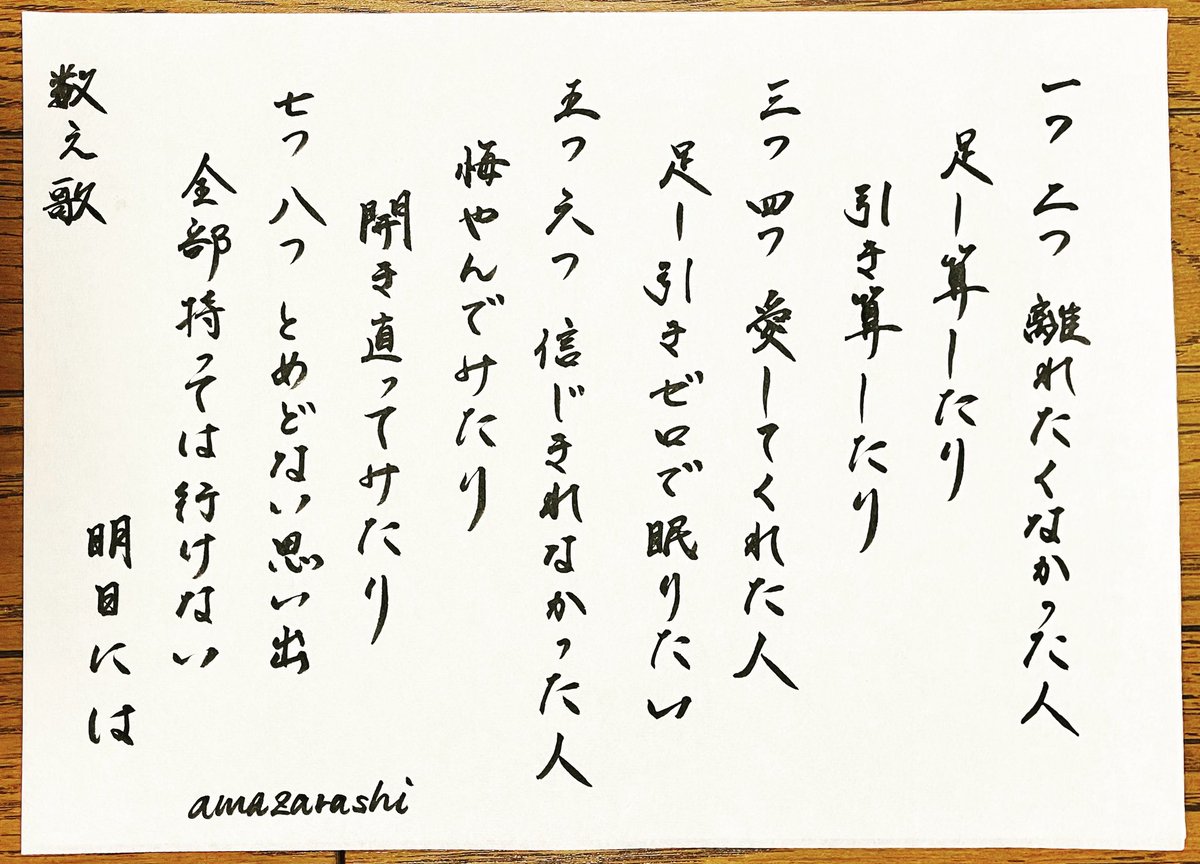 一つ 二つ 離れたくなかった人
足し算したり
引き算したり
三つ 四つ 愛してくれた人
足し引きゼロで眠りたい
五つ 六つ 信じきれなかった人
悔やんでみたり
開き直ってみたり
七つ 八つ とめどない思い出
全部持っては行けない
明日には
数え歌
amazarashi